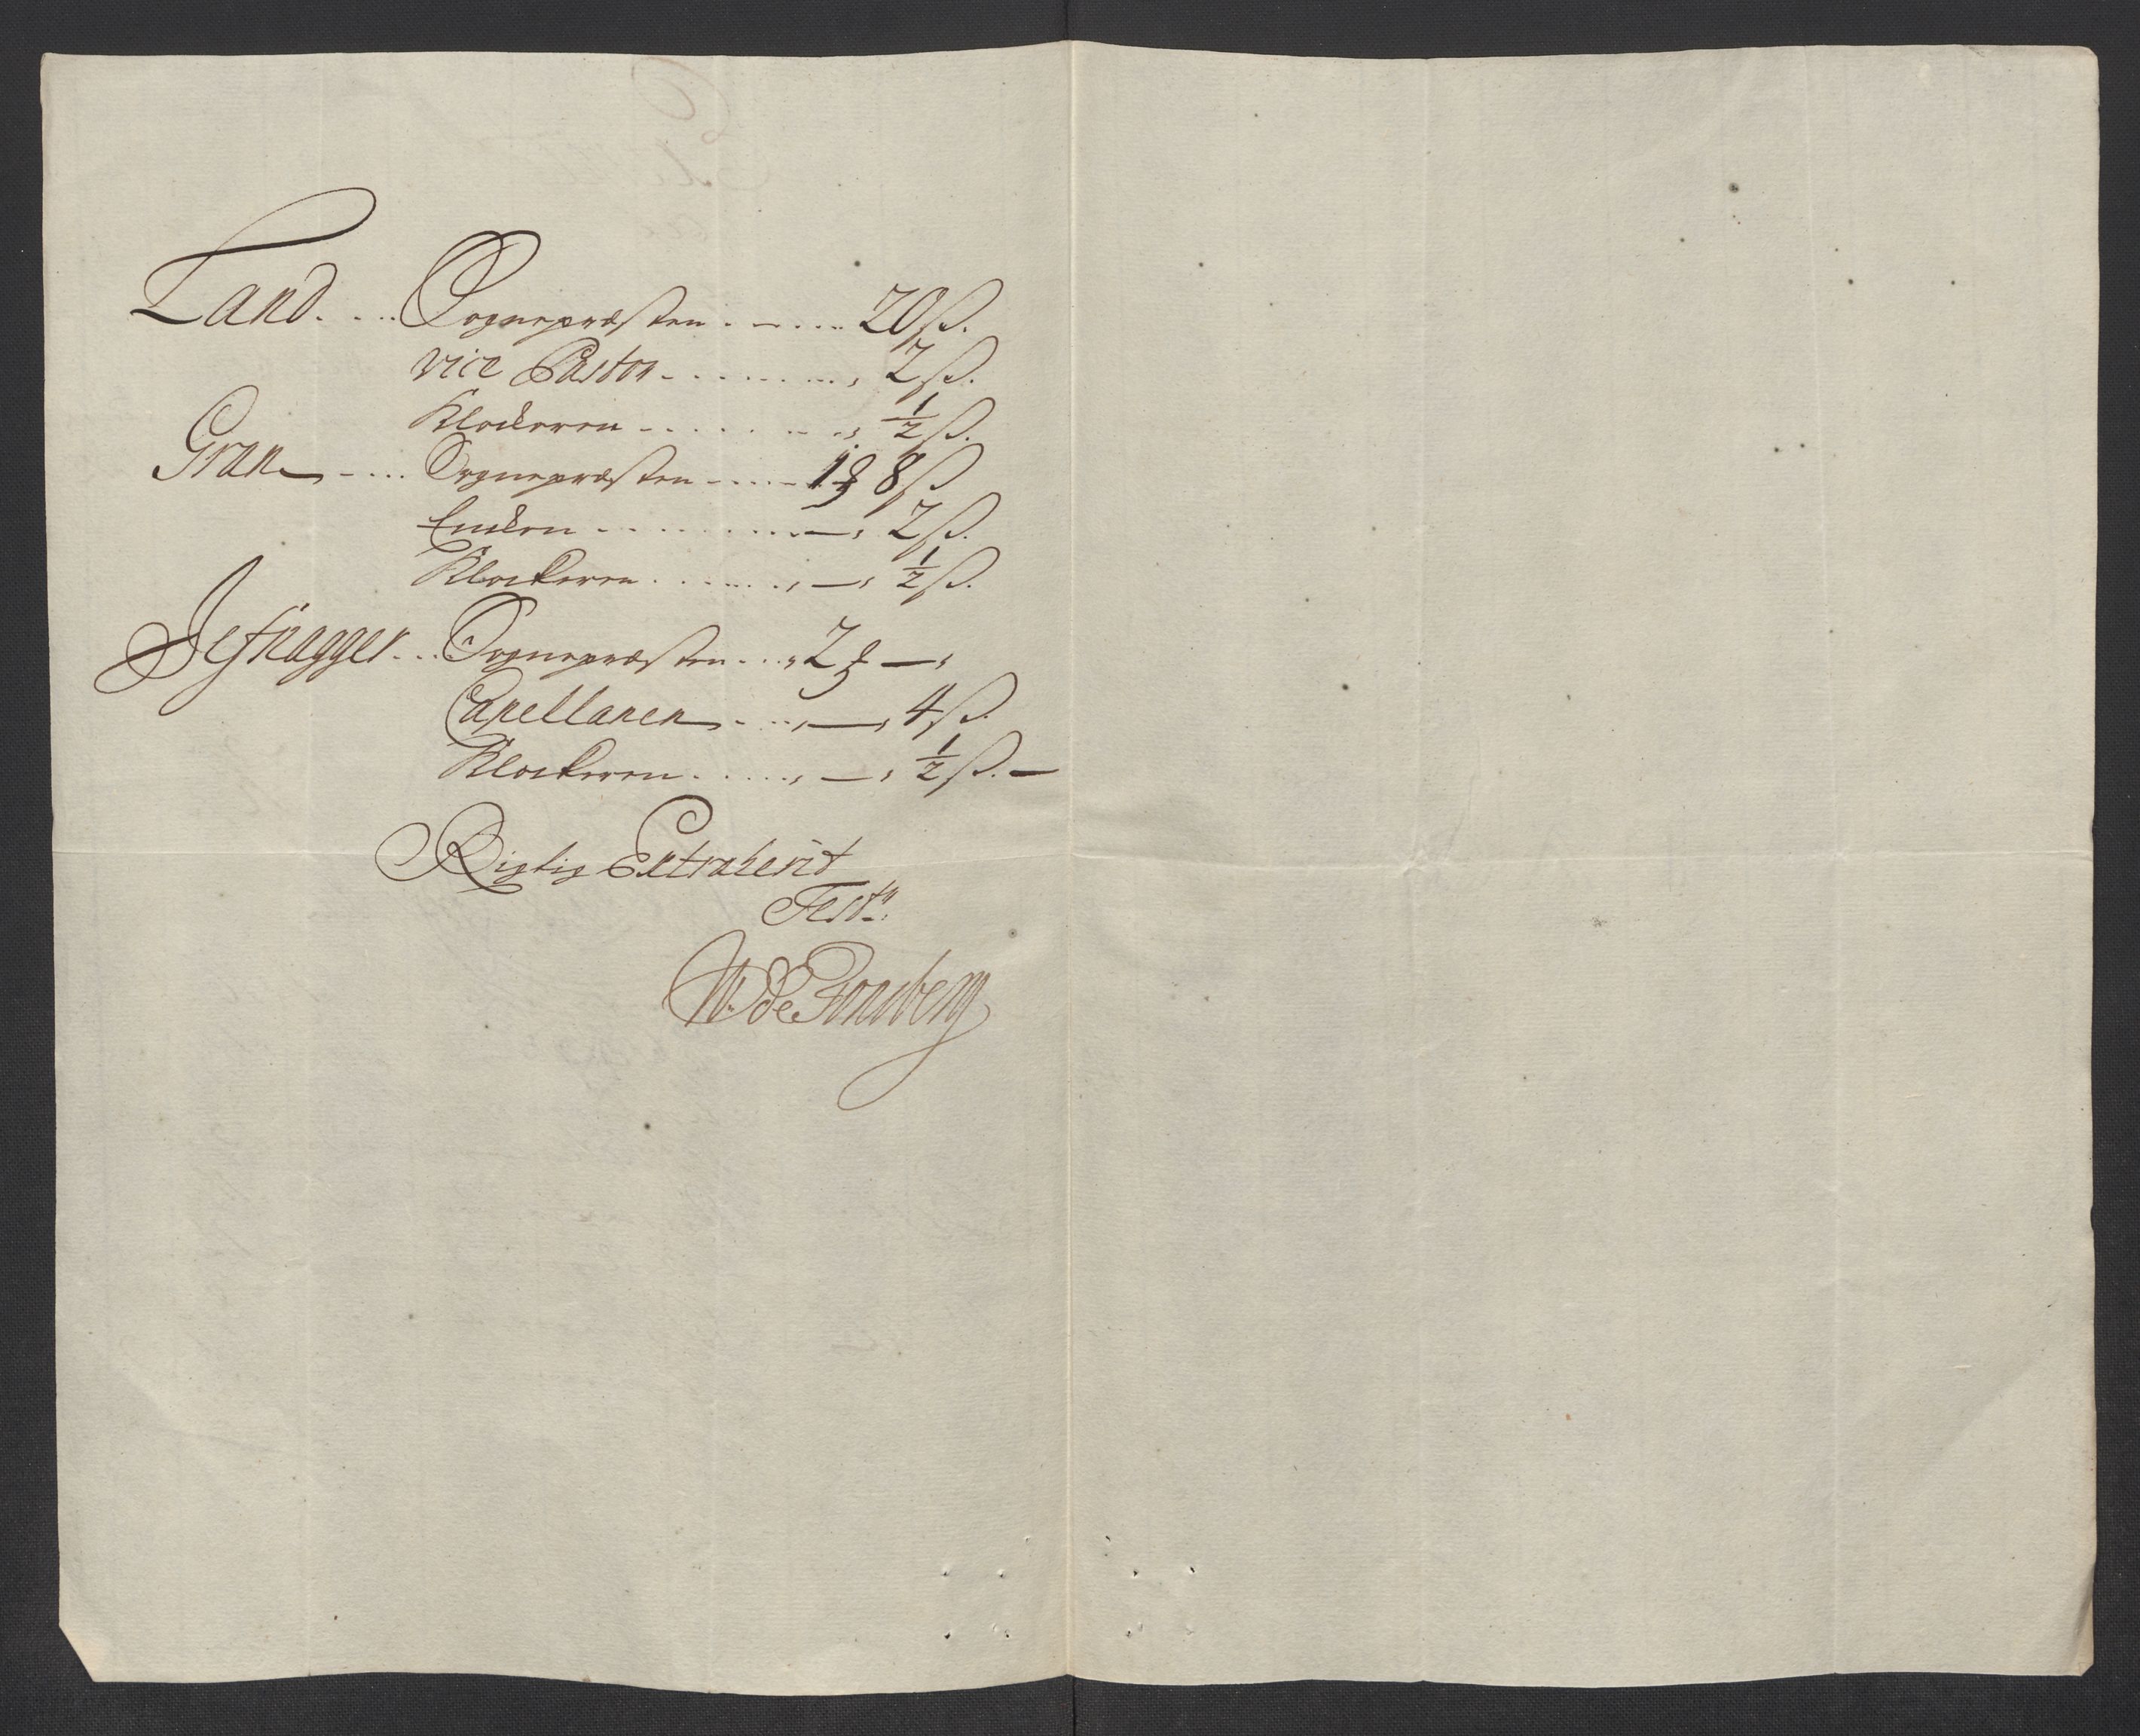 Land. . .. Sognepræsten . – . . .. 20 ß.
vice Pastor . . . . . . . . . , 2 ß.
Klockeren – . . . . . . . , ½ ß.
Gran – . .. Sognepræsten – . . . – 1 8 ß
Encken . . . . . . . . . — , 2 ß.
Klockeren . . . . . . , — , ½ ß.
Jefnagger . . . Sognepræsten . . . , 2 — ,
Capellanen . . . , — , 4 ß.
Klockeren . . . . . , — , ½ ß. —
Rigtig Extraherit
Test:
W. de Tonsberg